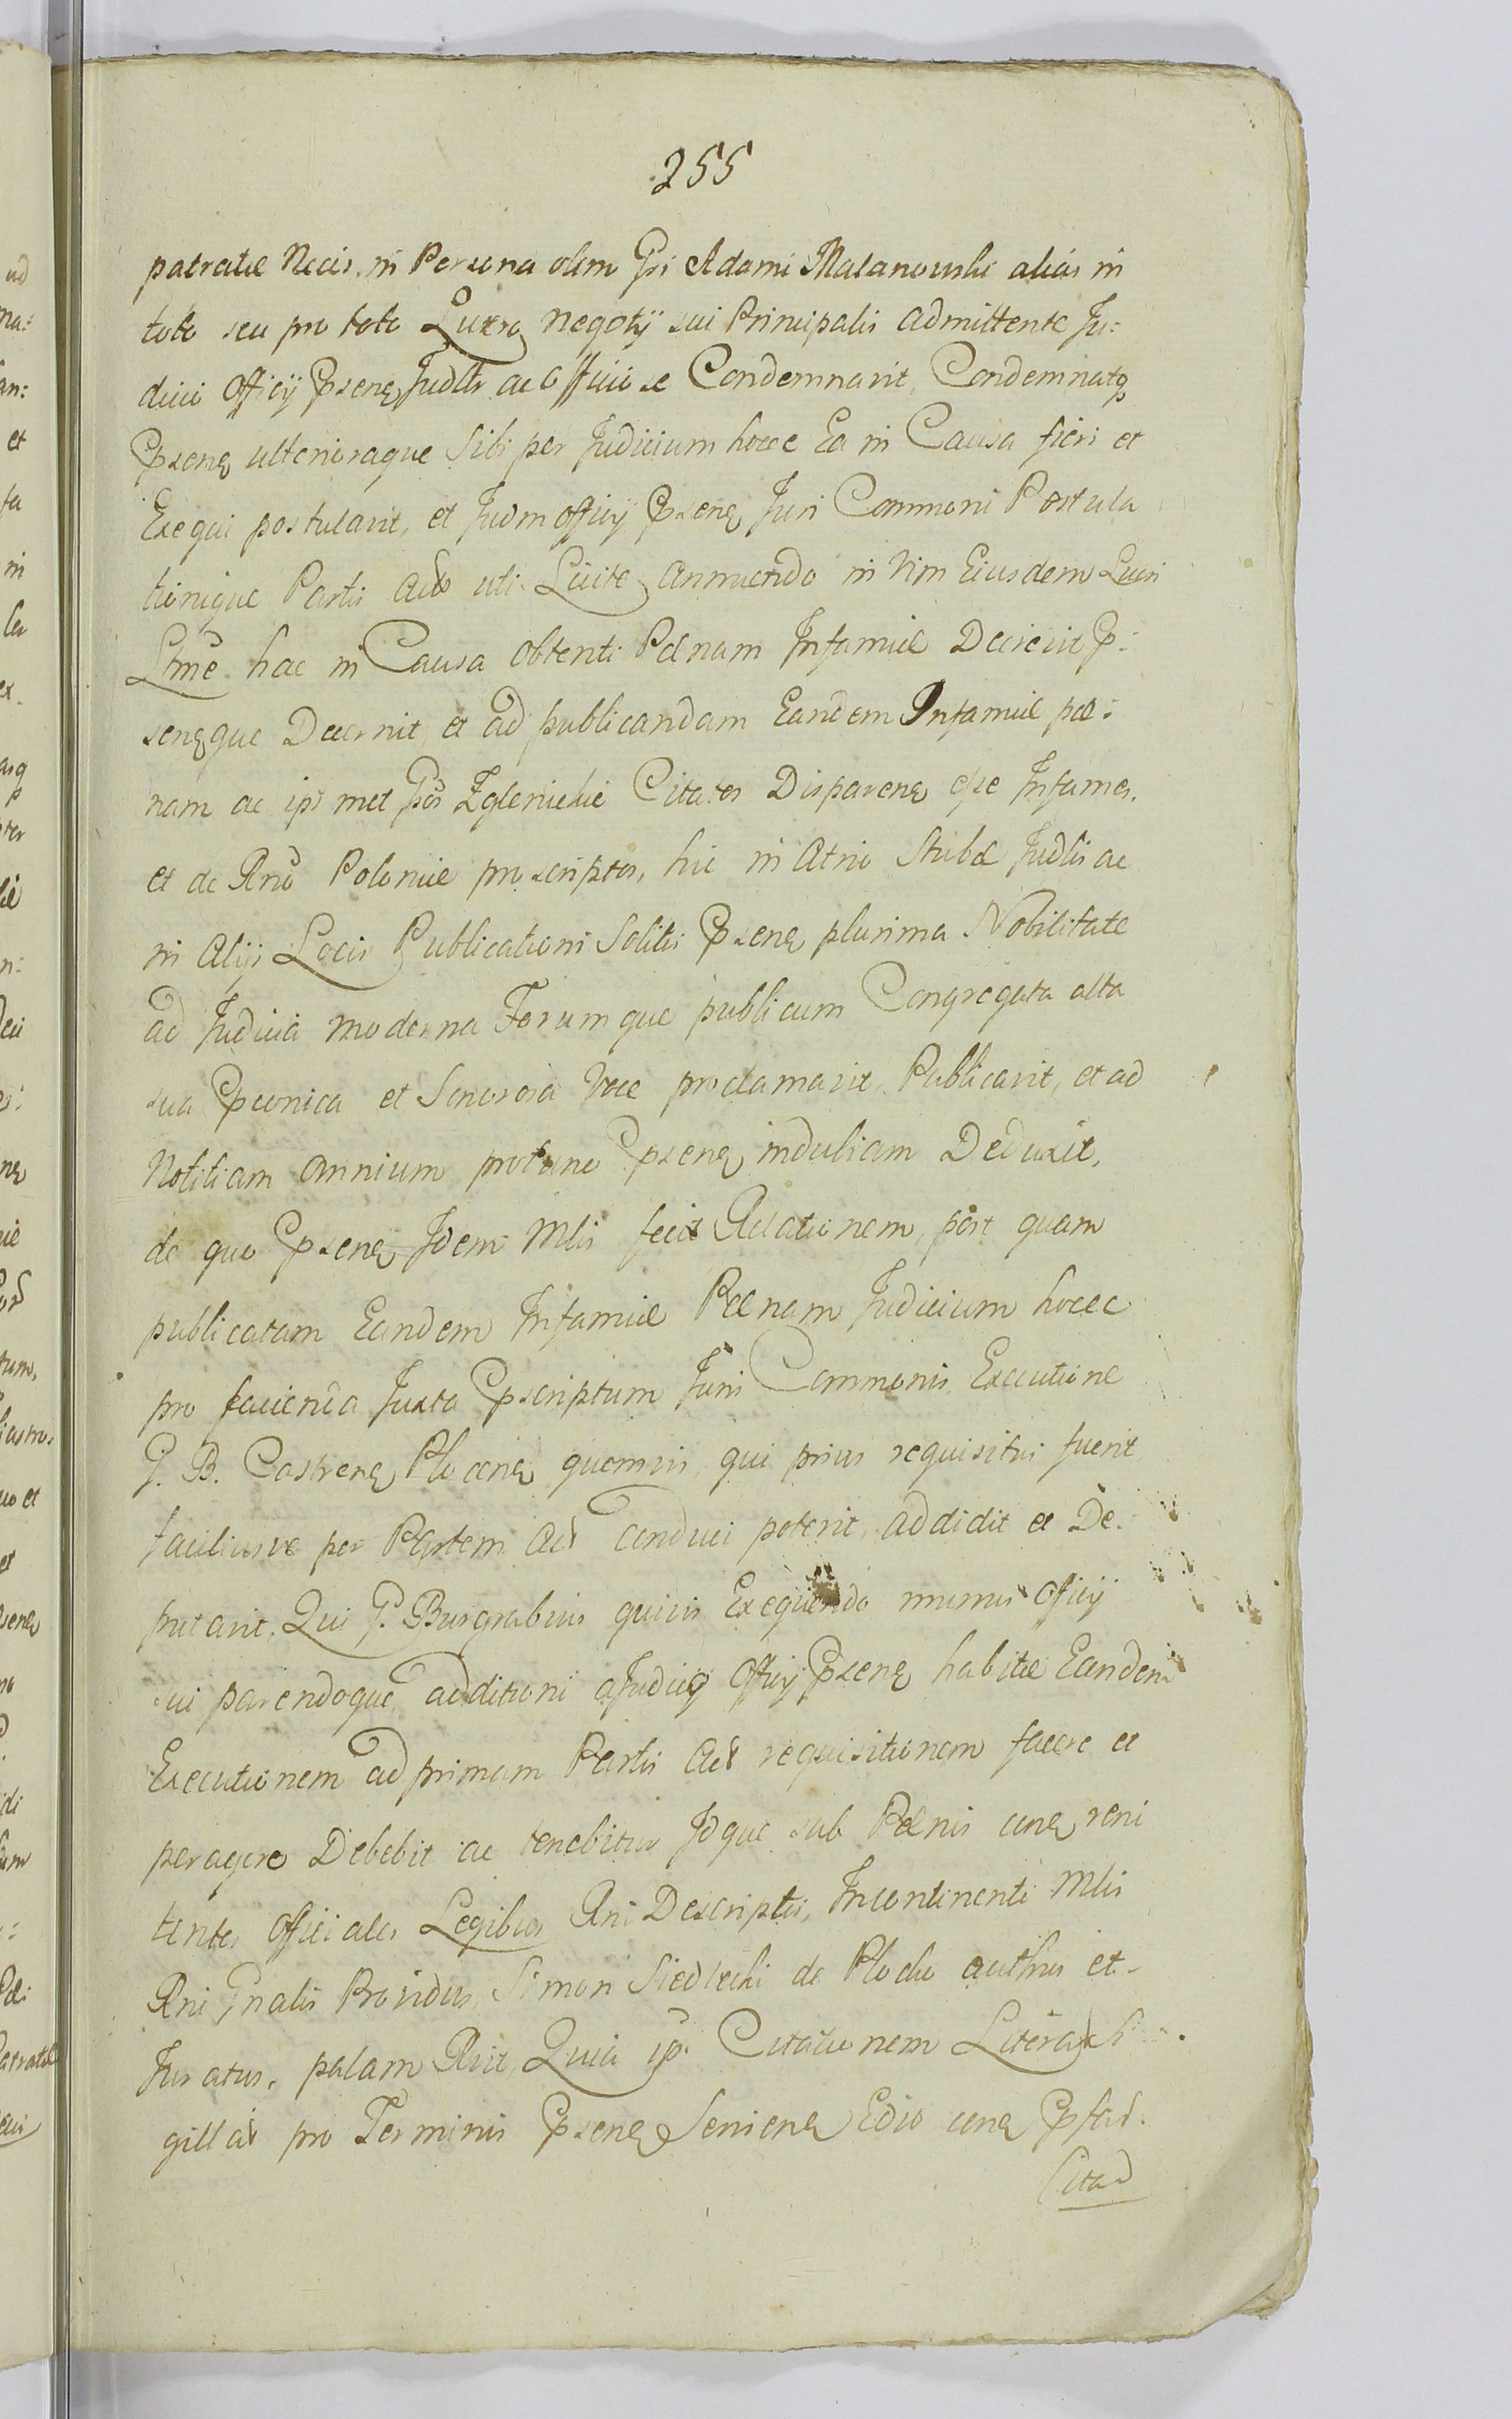 255
patratæ Necis, in Persona olim Gsi Adami Malanowski alias in
toto seu pro toto Lucro negotij sui Principalis admittente Ju:
dicio Officij Psenꝫ Judlr ac Officiose Condemnavit, Condemnatq
Psenꝫ ulterioraque Sibi per Judicium hocce Ea in Causa fieri et
Exequi postulavit, et Judm Officij Psenꝫ Juri Communi Postula
tionique Partis Actr uti Licite annuendo in Vim Eiusdem Lucri
Lme hac in Causa obtenti Pænam Infamiæ Decrevit P:
senꝫque Decernit, et ad publicandam Eandem Infamiæ pæ:
nam ac ips met Gos Zglenickie Citatos Disparenꝫ esse Infames,
et de Rno Poloniæ proscriptos, hic in Atrio Stubæ Judlis ac
in Alijs Locis Publicationi Solitis Psenꝫ plurima Nobilitate
ad Judicia moderna Forumque publicum Congregata alta
sua Pconica et Sonorosa Voce proclamavit, Publicavit, et ad
Notitiam omnium protunc Psenꝫ indubiam Deduxit,
de quo Psenꝫ Idem Mlis fecit Relationem, post quam
publicatam Eandem Infamiæ Pænam Judicium hocce
pro facienda Juxta Pscriptum Juris Communis Executione
G. B. Castrenꝫ Plocenꝫ quemvis, qui prius requisitus fuerit,
faciliusve per Partem Act conduci poterit, addidit et De:
putavit, Qui G. Burgrabius quivis Exequendo munus Officij
sui parendoque additioni a Judicio Officij Psenꝫ habitæ Eandem
Executionem ad primam Partis Act requisitionem facere et
peragere Debebit ac tenebitur Idque sub Pænis conꝫ reni
tentes Officiales Legibus Rni Descriptis, Incontinenti Mlis
Rni Gnalis Providus Simon Siedlecki de Plocko authus et
Juratus, palam Rvit, Quia ip. Citationem Literal Si
gillat pro Terminis Psenꝫ Senienꝫ Edio conꝫ Pfat.
Citad